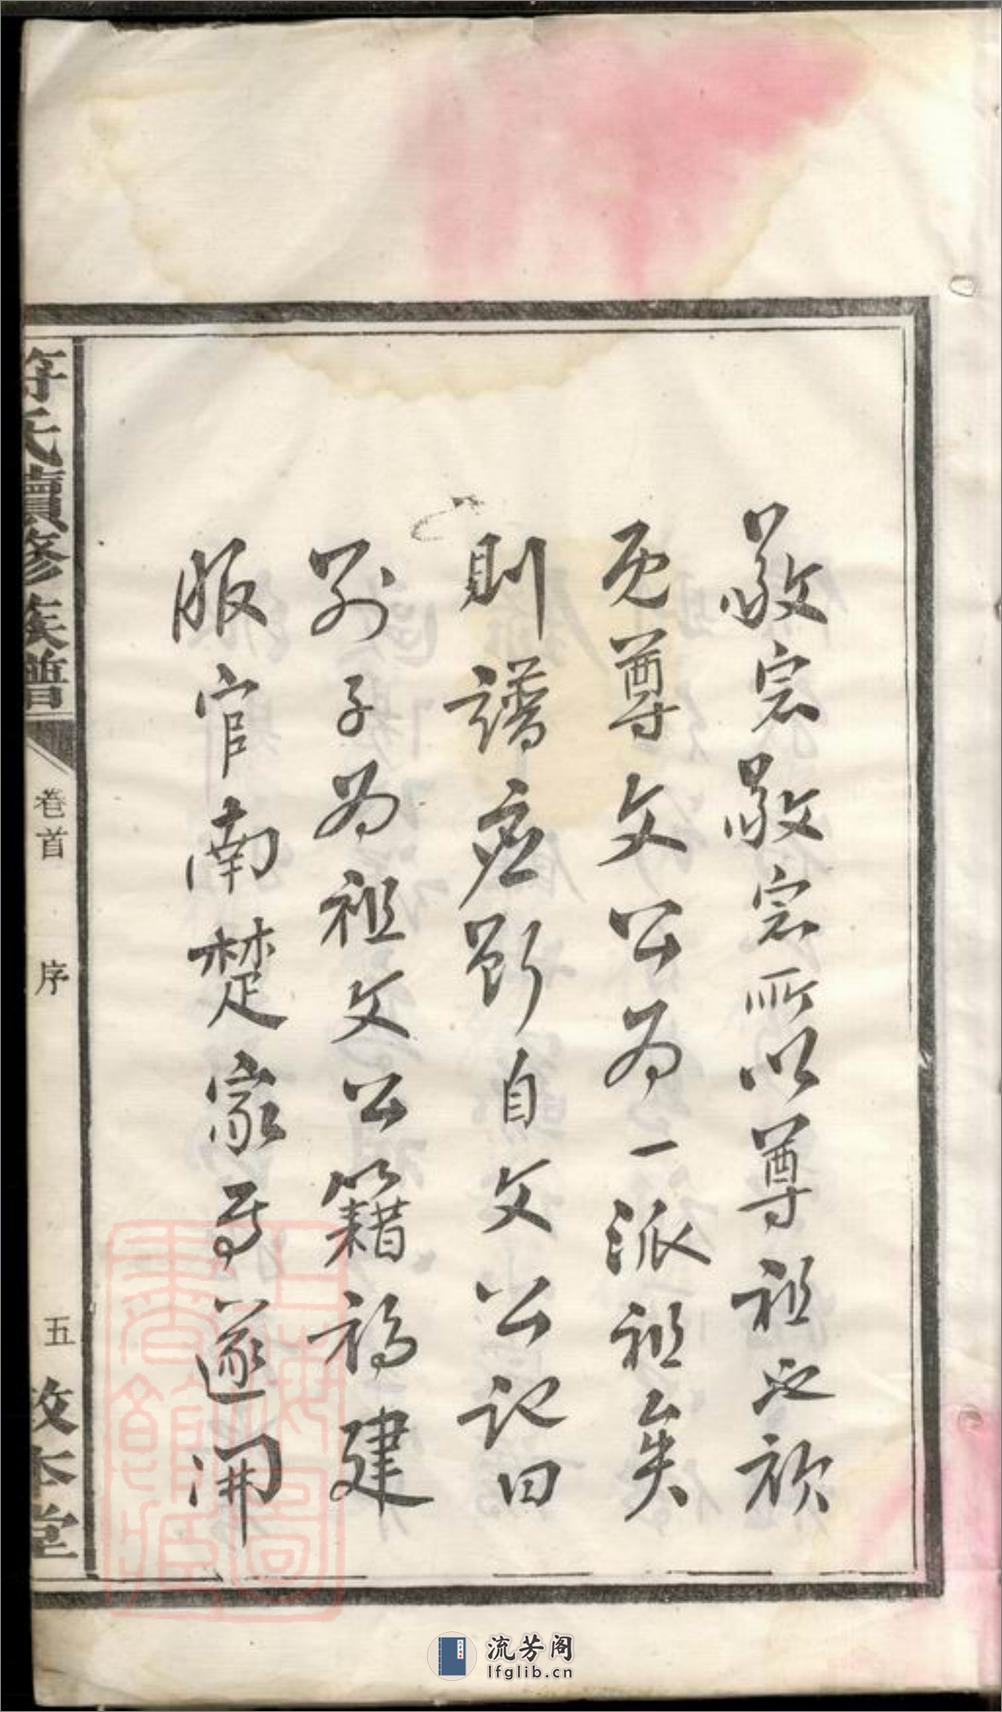 敬宗敬宗所以尊祖也祢
既尊文公为一派祖矣
則譜应断自文公記曰
别子为祖文公籍福建
服官南楚家焉遂開
符氏續修族譜
卷首
序
五
敦本堂
流芳阁
lfglib.cn